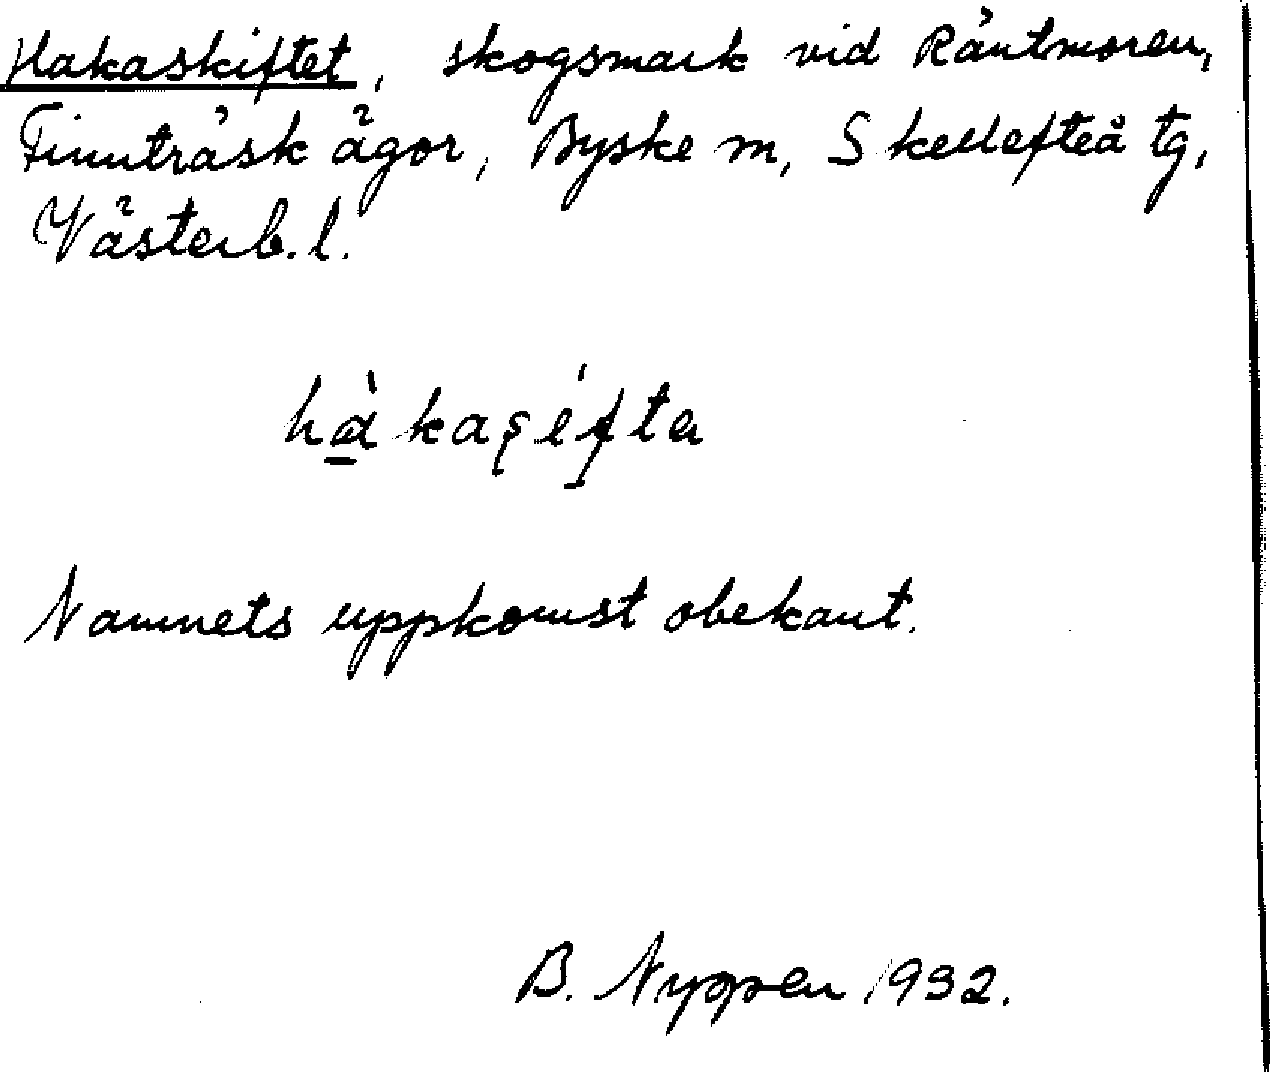 Hakaskiftet, skogsmark vid Räntmoren,
Finnträsk ägor, Byske m, Skellefteå tg,
Västerb. l.
Namnets uppkomst obekant.
B. Nyppen 1932.